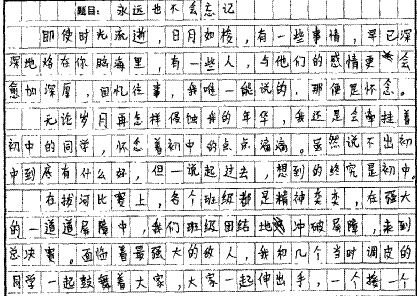 题目：永远也不会忘记
即使时光流逝，日月如梭，有一些事情，早已深
深地烙在你脑海里，有一些人，与他们的感情更会
愈加深厚，回忆往事，我唯一能说的，那便是怀念。
无论岁月再怎样侵蚀我的年华，我还是会牵挂着
初中的同学，怀念着初中的点点滴滴。虽然说不出初
中到底有什么好，但一说起过去，想到的终究是初中。
在拔河比赛上，各个班级都是精神奕奕，在强大
的一道道屏障中，我们班级团结地冲破屏障，来到
总决赛。面临着最强大的敌人，我和几个当时调皮的
同学一起鼓舞着大家，大家一起伸出手，一个接一个